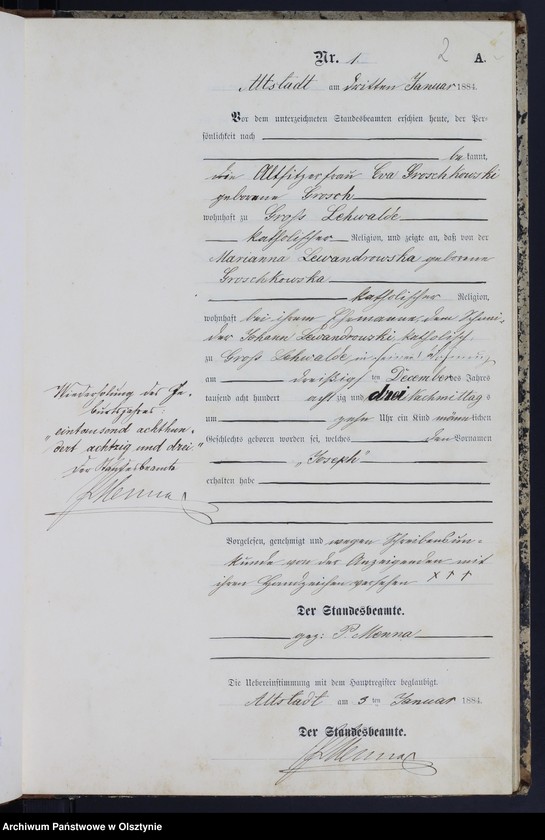 2
Nr. 1. A.
Altstadt am dritten Januar 1884.
Vor dem unterzeichneten Standesbeamten erschien heute, der Per-
sönlichkeit nach
be kannt,
die Altsitzerfrau Eva Groschkowski
geborene Grosch
wohnhaft zu Groß Lehwalde
katholischer Religion, und zeigte an, daß von der
Marianna Lewandrowska geborene
Groschkowska
katholischer Religion,
wohnhaft bei ihrem Ehemanne, dem Schnei-
der Johann Lewandrowski, katholisch,
zu Groß Lehwalde, in seiner
am dreißigsten December des Jahres
tausend acht hundert achtzig und drei Nachmittags
um zehn Uhr ein Kind männlichen
Geschlechts geboren worden sei, welches den Vornamen
„Joseph“
erhalten habe
Wiederholung des Ge-
burtsjahres:
„eintausend achthun-
dert achtzig und drei“
Der Standesbeamte
Menna
Vorgelesen, genehmigt und wegen Schreibensun-
kunde von der Anzeigenden mit
ihren Handzeichen versehen xxx
Der Standesbeamte.
gez: P. Menna
Die Uebereinstimmung mit dem Hauptregister beglaubigt.
Altstadt am 3 ten Januar 1884
Der Standesbeamte.
Menna
Archiwum Państwowe w Olsztynie